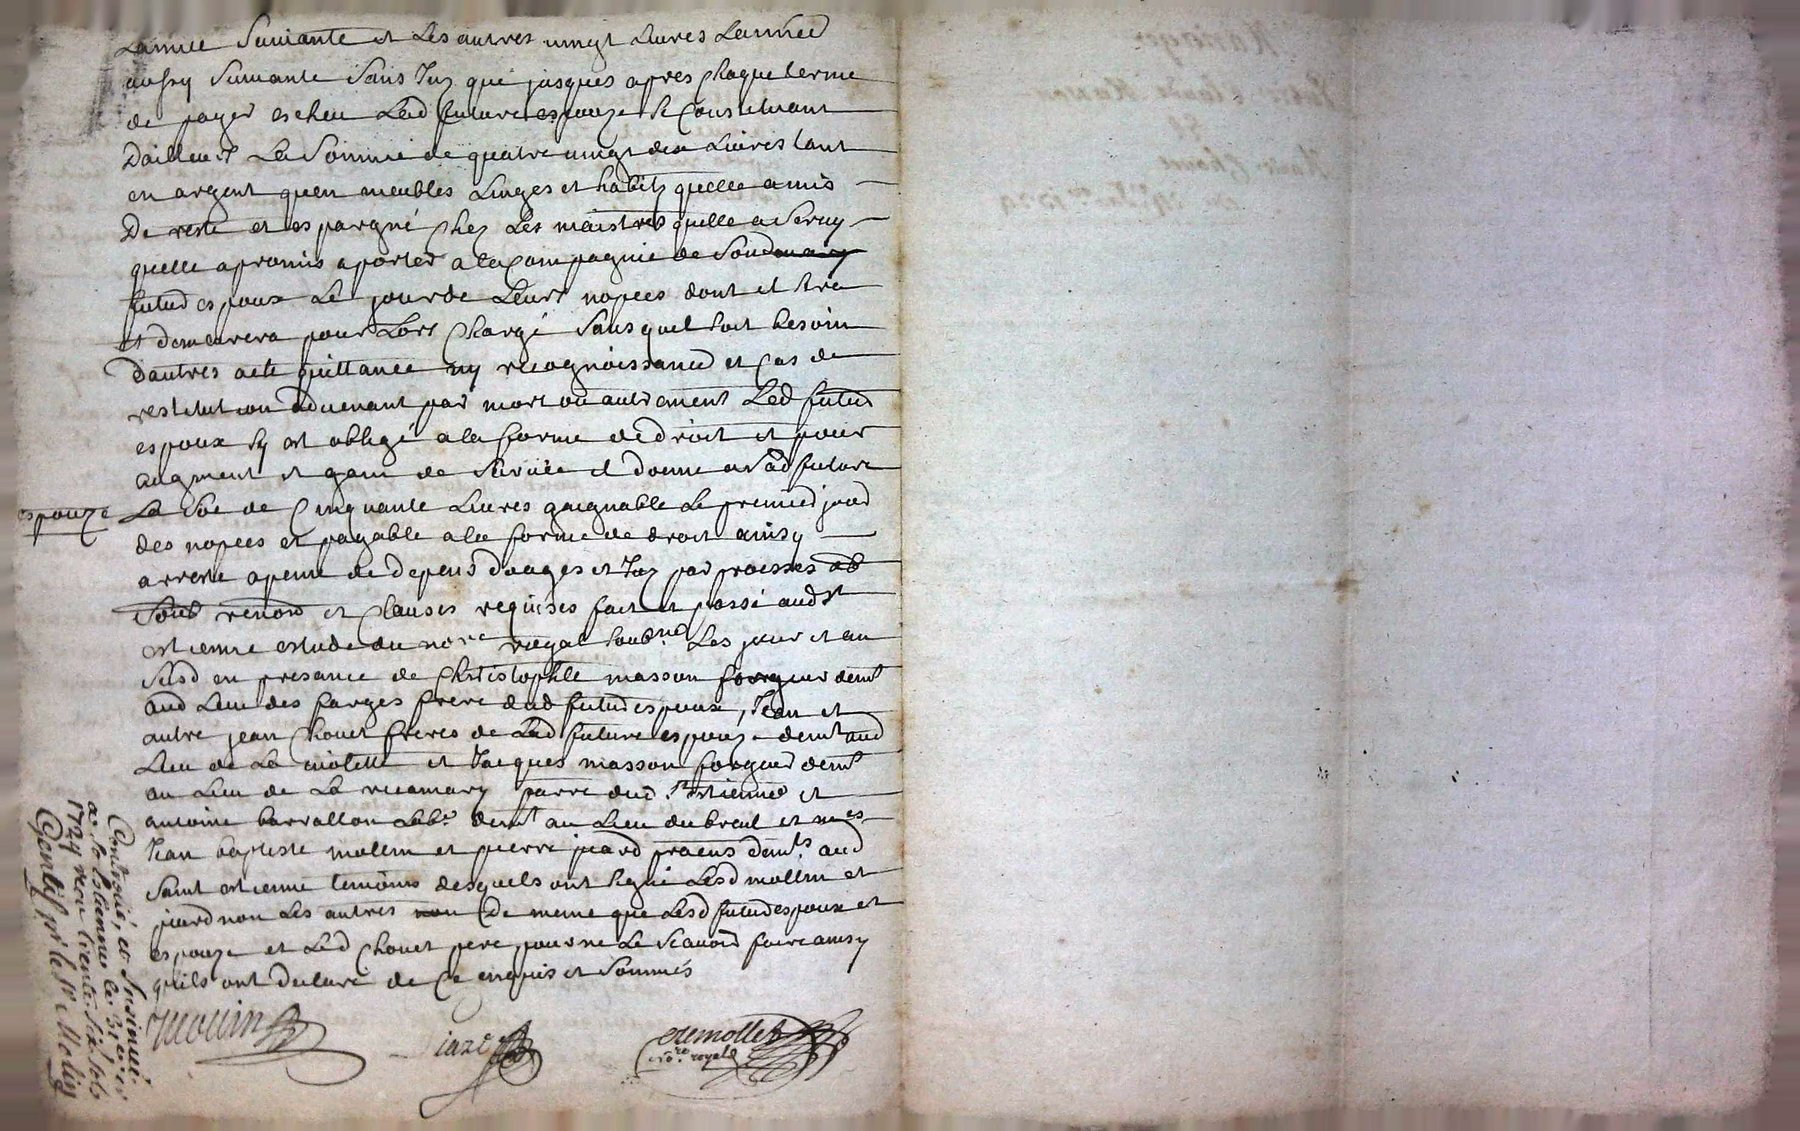 Lannee Suivante et Les autres vingt Livres Lannee
aussy Suivante Sans Inz que jusques apres chaque terme
de payer escheu Lad future espouze Se Constituant
Dailleurs La Somme de quatre vingt dix Livres tant
en argent quen meubles Linges et habitz quelle a mis
De reste et espargné chez Les maistres quelle a Servy
quelle a promis aporter a la Compagnie de Son
futur espoux Le jour de Leurs nopces dont il Sera
et demeurera pour Lors Chargé Sans quil soit besoin
Dautres acte quittance ny recognoissance et Cas de
restitution advenant par mort ou autrement Led futur
espoux Sy est obligé a la forme de droit et pour
augment et gain de Survie il donne a Lad future
espouze La Soe de Cinquante Livres gaignable Le premier jour
des nopces et payable a la forme de droit ainsy
arresté a peine de depens domages et Inz par promesses ob
Soub renon et Clauses requises fait et passé aud St
estienne estude du nore royal soubne Les jour et an
Susd en presance de Christophle masson forgeur demt
aud Lieu des farges frere dud futur espoux, Jean et
autre jean Chouet freres de Lad future espouze demt aud
Lieu de La et Jacques masson forgeur demt
au Lieu de La ricamary parre dud St Estienne et
antoine barrallon Labr demt au Lieu du breul et mes
Jean baptiste mollin et pierre jeard praens demts aud
Saint estienne temoins desquels ont Signé Lesd mollin et
jeard non Les autres de meme que Lesd futur espoux et
espouze et Led Chouet pere pour ne Le Scavoir faire ainsy
quils ont declaré de Ce enquis et Sommés
mollin
demollet
nore royal
Controllé, et Insinué
a St Estienne le 31
1729 receu trente Six sols
Gentil pr le Sr Molin